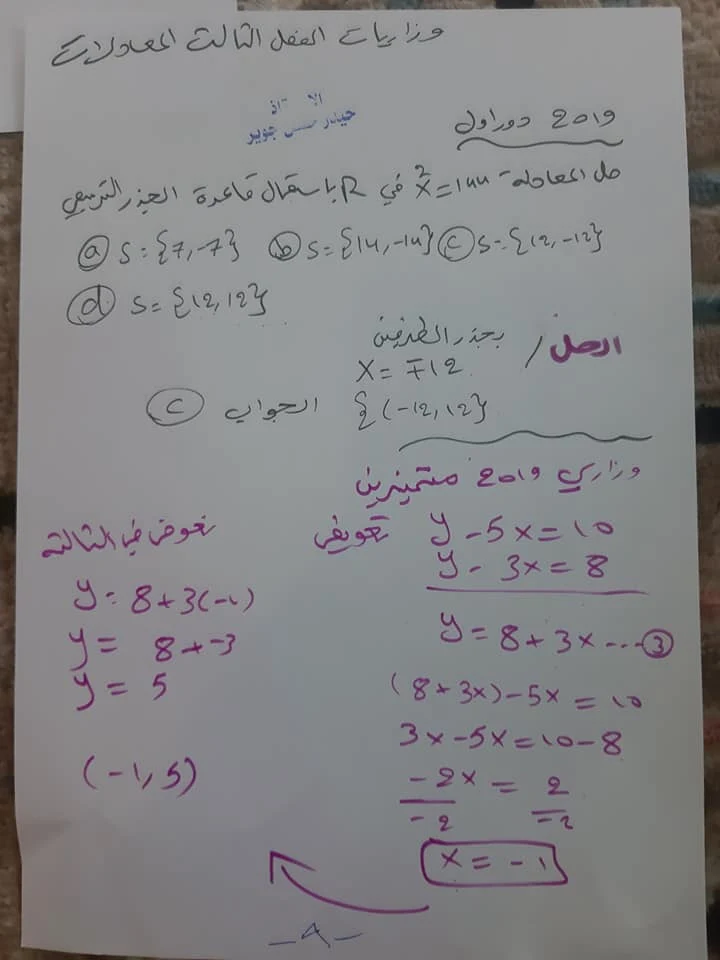 وزاريات الفصل الثالث المعادلات
الاستاذ
حيدر حسن جوير
2019 دور اول
حل المعادلة x²=144 في R باستعمال قاعدة الجذر التربيعي
ⓐ S={7,-7} ⓑ S={14,-14} ⓒ S={12,-12}
ⓓ S={12,12}
الحل / بجذر الطرفين
X= ∓12
{(-12,12} الجواب ⓒ
وزاري 2019 متميزين
y-5x=10 تعويض
y-3x=8
y=8+3x---③
(8+3x)-5x=10
3x-5x=10-8
-2x/-2 = 2/-2
x=-1
نعوض في الثالثة
y=8+3(-1)
y= 8+-3
y= 5
(-1,5)
-9-